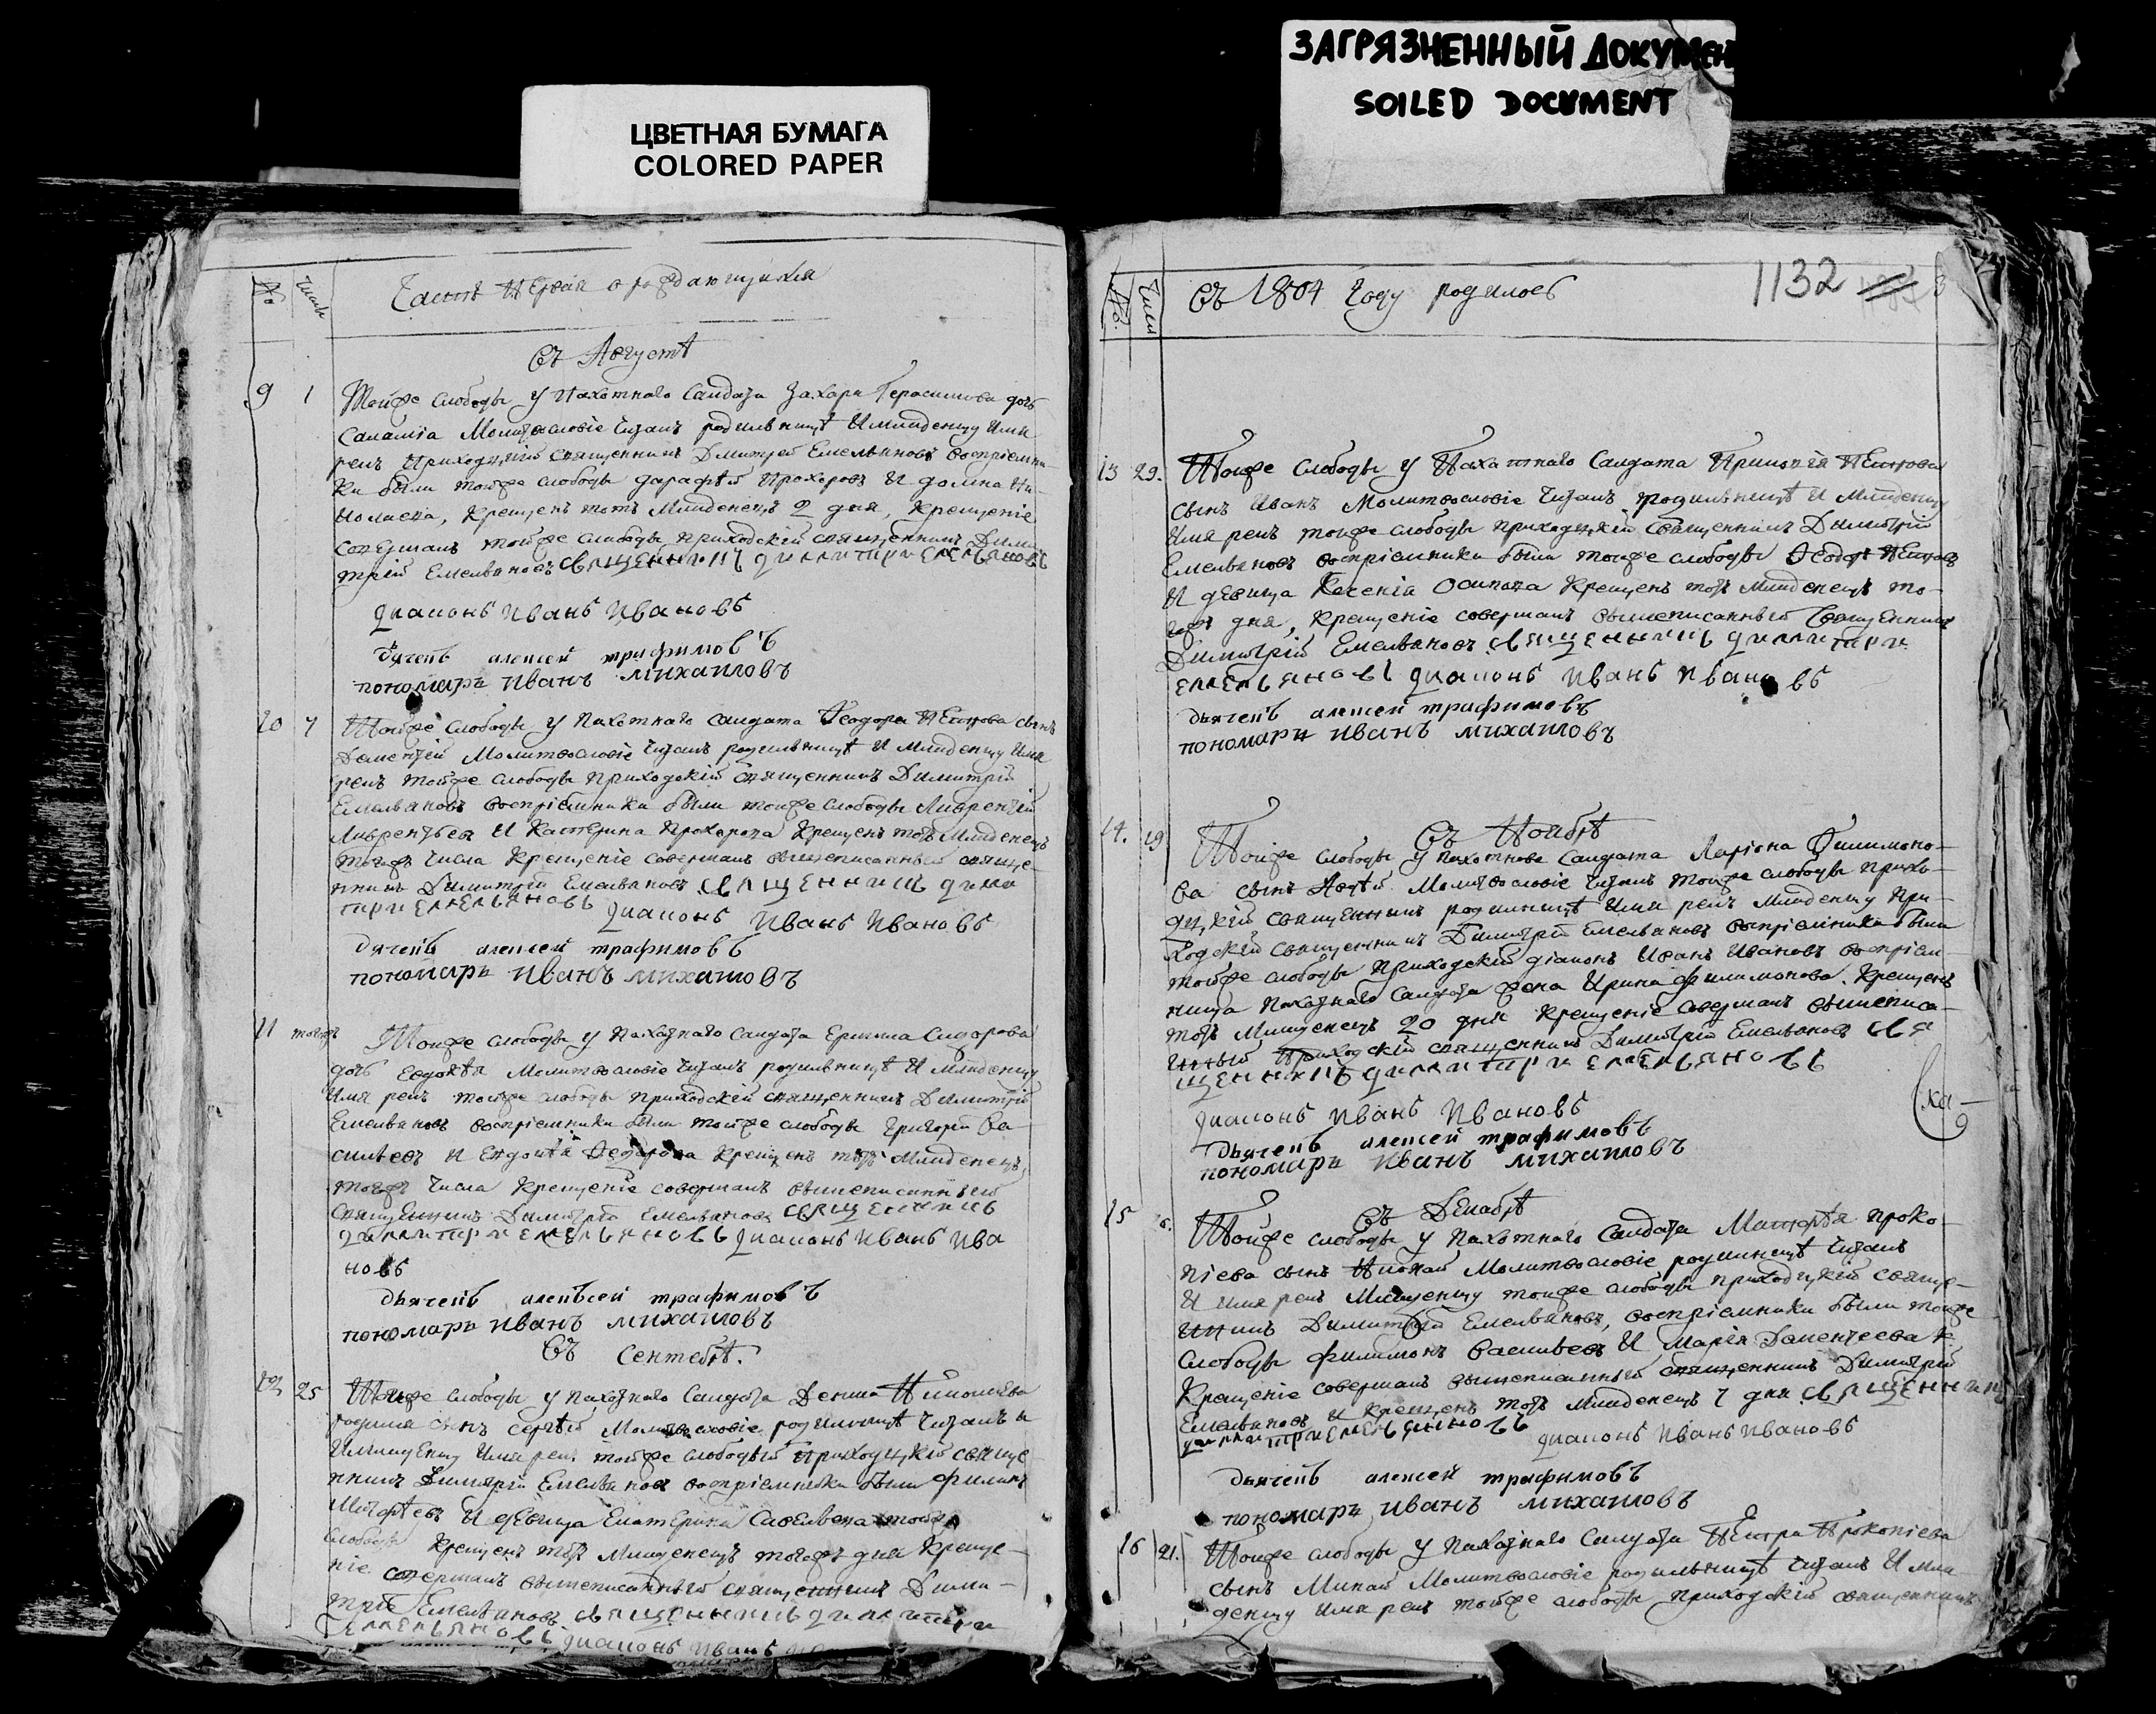 ЦВЕТНАЯ БУМАГА
COLORED PAPER
ЗАГРЯЗНЕННЫЙ ДОКУМЕН
SOILED DOCUMENT
№ Числа
Часть первая о раждающихся
Въ Августѣ
9 1 Тойже слободы у пахотнаго салдата Захара Герасимова дочь
Саламіа молитвословіе читалъ родильницѣ и младенцу имя
рекъ приходцкій священникъ Димитрей Емельяновъ воспріемни-
ки были тойже слободы Прохоровъ и домна Ни-
колаева, крещенъ тотъ младенецъ 2 дня, крещеніе
совершалъ тойже слободы приходскій священникъ Дими-
трій Емельяновъ священникъ димитри емельяновъ
диаконъ иванъ ивановъ
дьячекъ алексей трафимовъ
пономарь иванъ михаиловъ
10 7 Тойже слободы у пахотнаго салдата Ѳеодора Петрова сынъ
Дементей молитвословіе читалъ родильницѣ и младенцу имя
рекъ тойже слободы приходскій священникъ Димитрій
Емельяновъ воспріемники были тойже слободы Лаврентей
Лаврентьевъ и Катерина Прохорова крещенъ тотъ младенецъ
тогожъ числа крещеніе совершалъ вышеписанный свяще-
нникъ Димитрій Емельяновъ священникъ дими
три емельяновъ диаконъ иванъ ивановъ
дьячекъ алексей трафимовъ
пономарь иванъ михаиловъ
11 тогожъ Тойже слободы у пахатнаго салдата Сидорова
дочь Евдокѣя молитвословіе читалъ родильницѣ и младенцу
имя рекъ тойже слободы приходскій священникъ Димитрій
Емельяновъ воспріемники были тойже слободы Григорій Ва-
сильевъ и Евдокѣя Ѳедорова крещенъ тотъ младенецъ
тогожъ числа крещеніе совершалъ вышеписанный
священникъ Димитрій Емельяновъ священникъ
димитри емельяновъ диаконъ иванъ ива
новъ
дьячекъ алексей трафимовъ
пономарь иванъ михаиловъ
Въ Сентебрѣ.
12 25 Тойже слободы у пахатнаго салдата Дениса
сынъ Сергѣй молитвословіе родильницѣ читалъ и
имя рекъ тойже слободы приходцкій свяще
нникъ Димитрій Емельяновъ воспріемники были Филипъ
и девица Екатерина Савельева тойже
слободы крещенъ тотъ младенецъ тогожъ дня креще-
ніе совершалъ вышеписанный священникъ Дими-
трій Емельяновъ священникъ димитри
емельяновъ диаконъ иванъ
№ Числ
Въ 1804 году родилось
1132
13 29. Тойже слободы у пахатнаго салдата Петрова
сынъ Иванъ молитвословіе читалъ родильницѣ и младенцу
имя рекъ тойже слободы приходцкій священникъ Димитрій
Емельяновъ воспріемники были тойже слободы Ѳеодоръ Петровъ
и девица Ксенія Осипова крещенъ тотъ младенецъ то-
гожъ дня, крещеніе совершалъ вышеписанный священникъ
Димитрій Емельяновъ священникъ димитри
емельяновъ диаконъ иванъ ивановъ
дьячекъ алексей трафимовъ
пономарь иванъ михаиловъ
Въ Ноябрѣ
14. 19 Тойже слободы у пахотнова салдата Ларіона Филимоно-
ва сынъ молитвословіе читалъ тойже слободы прихо-
дцкій священникъ родильницѣ имя рекъ младенцу при-
ходскій священникъ Димитрій Емельяновъ воспріемники были
тойже слободы приходскій діаконъ Иванъ Ивановъ воспріем-
ница пахатнаго салдата жена Ирина Филимонова. крещенъ
тотъ младенецъ 20 дня крещеніе совершалъ вышеписа-
нный приходскій священникъ Димитрій Емельяновъ свя
щенникъ димитри емельяновъ
диаконъ иванъ ивановъ
дьячекъ алексей трафимовъ
пономарь иванъ михаиловъ
Въ Декабрѣ
15 6. Тойже слободы у пахотнаго салдата Матфѣя Проко-
піева сынъ молитвословіе родильницѣ читалъ
и имя рекъ младенцу тойже слободы приходцкій свяще-
нникъ Димитрій Емельяновъ, воспріемники были тойже
слободы Филимонъ Васильевъ и Марія Дементеева
крещеніе совершалъ вышеписанный священникъ Димитрій
Емельяновъ и крещенъ тотъ младенецъ 7 дня священникъ
димитри емельяновъ диаконъ иванъ ивановъ
дьячекъ алексей трафимовъ
пономарь иванъ михаиловъ
16 21. Тойже слободы у пахатнаго салдата Петра Прокопіева
сынъ Минай молитвословіе родильницѣ читалъ и мла
денцу имя рекъ тойже слободы приходскій священникъ